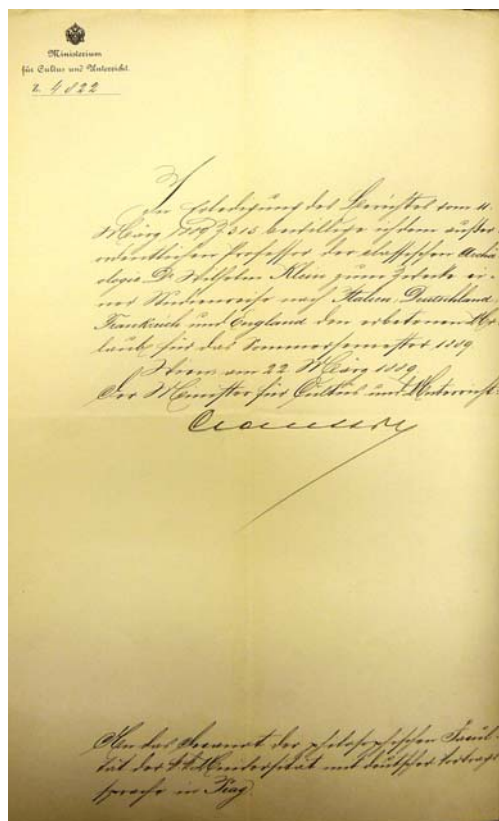 Ministerium
für Cultus und Unterricht.
Z. 4822
In Erledigung des Berichtes vom 11.
März 1889 Z. 515 bewillige ich dem außer-
ordentlichen Professor der classischen Archä-
ologie Dr. Wilhelm Klein zum Zwecke ei-
ner Studienreise nach Italien, Deutschland,
Frankreich und England den erbetenen Ur-
laub für das Sommersemester 1889.
Wien am 22. März 1889.
Der Minister für Cultus und Unterricht:
An das Decanat der philosophischen Facul-
tät der k.k. Universität mit deutscher Vortrags-
sprache in Prag.